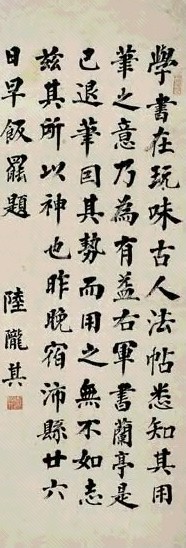 學書在玩味古人法帖悉知其用
筆之意乃為有益右軍書蘭亭是
已退筆因其勢而用之無不如志
茲其所以神也昨晚宿沛縣廿六
日早飯罷題
陸隴其